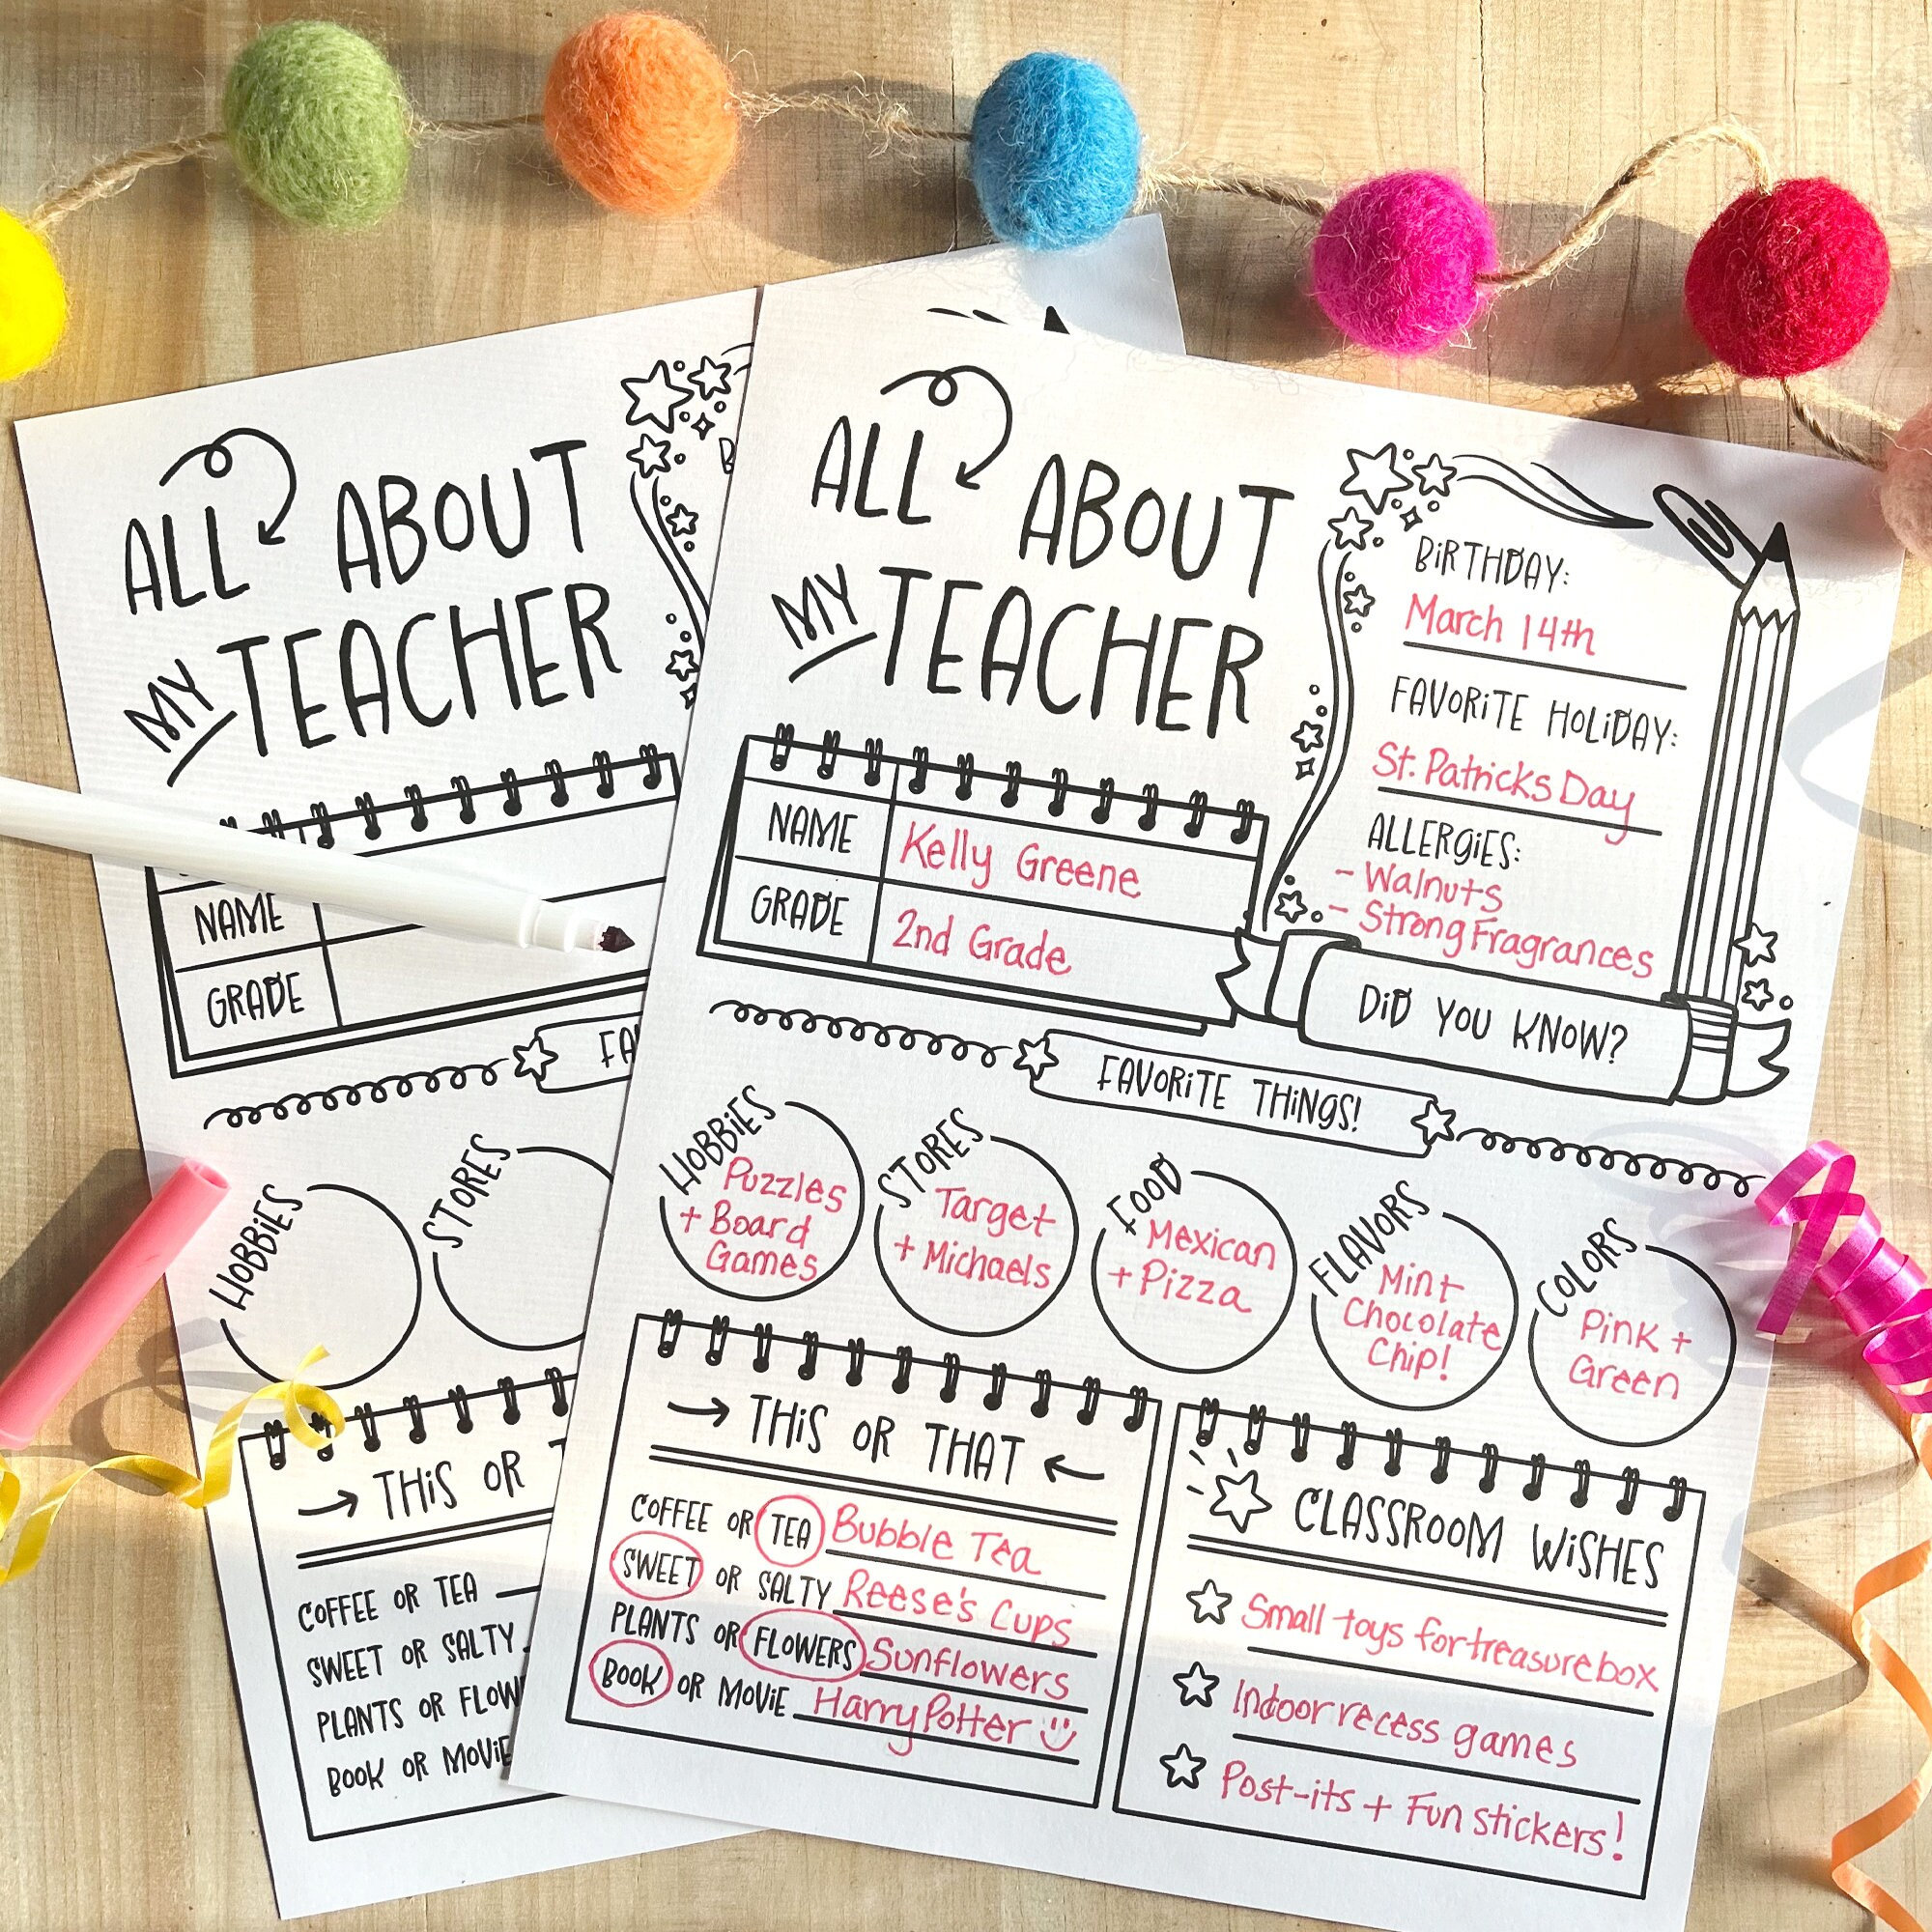 ALL ABOUT
MY TEACHER
NAME
GRADE
FA
HOBBIES
STORES
THIS OR T
COFFEE OR TEA
SWEET OR SALTY
PLANTS OR FLOW
BOOK OR MOVIE
ALL ABOUT
MY TEACHER
NAME Kelly Greene
GRADE 2nd Grade
BIRTHDAY:
March 14th
FAVORITE HOLIDAY:
St. Patricks Day
ALLERGIES:
- Walnuts
- Strong Fragrances
DID YOU KNOW?
FAVORITE THINGS!
HOBBIES
Puzzles
+ Board
Games
STORES
Target
+ Michaels
FOOD
Mexican
+ Pizza
FLAVORS
Mint
Chocolate
Chip!
COLORS
Pink +
Green
THIS OR THAT
COFFEE OR TEA Bubble Tea
SWEET OR SALTY Reese's Cups
PLANTS OR FLOWERS Sunflowers
BOOK OR MOVIE Harry Potter
CLASSROOM WISHES
Small toys for treasure box
Indoor recess games
Post-its + Fun stickers!